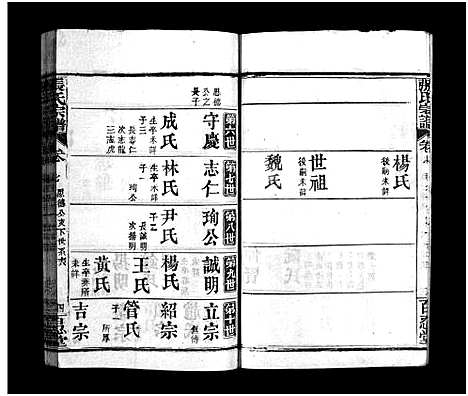 張氏宗譜
卷
百忍堂
楊氏
後嗣未詳
世祖
後嗣未詳
魏氏
第六世
守慶
思德公之
長子
成氏
生卒未詳
子三
長志仁
次志龍
三志虎
第七世
志仁
林氏
生卒未詳
子一
珣公
第八世
珣公
尹氏
子二
長誠明
次揚明
第九世
誠明
楊氏
王氏
黃氏
生卒葬所
未詳
第十世
立宗
紹宗
管氏
吉宗
張氏宗譜
思德公支下世系
百忍堂